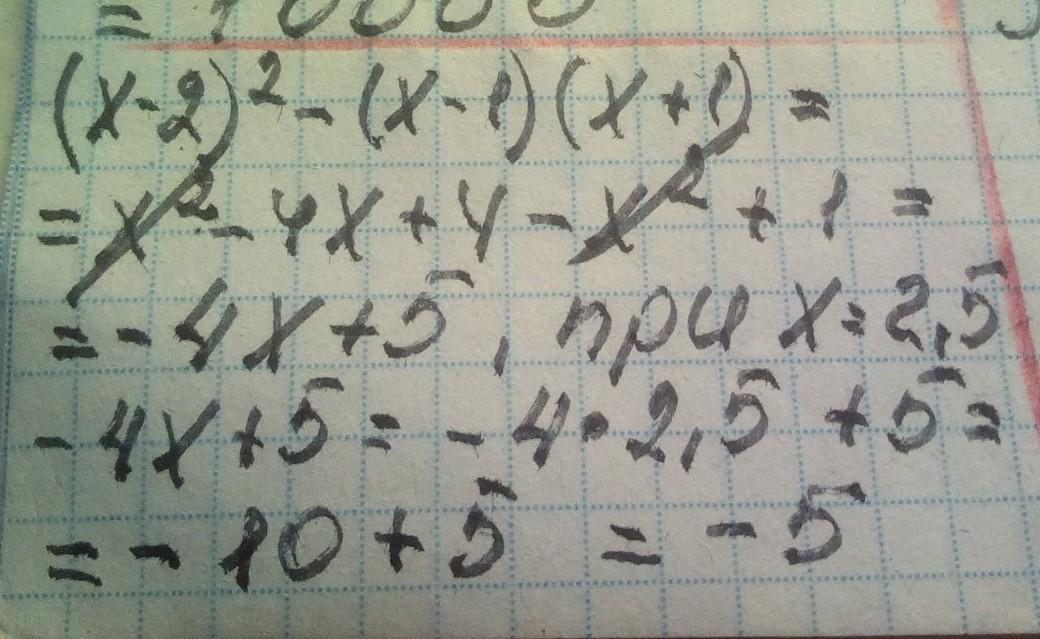 = 10000
(x-2)² - (x-1)(x+1) =
= x² - 4x + 4 - x² + 1 =
= - 4x + 5, при x = 2,5
- 4x + 5 = - 4 · 2,5 + 5 =
= - 10 + 5 = - 5